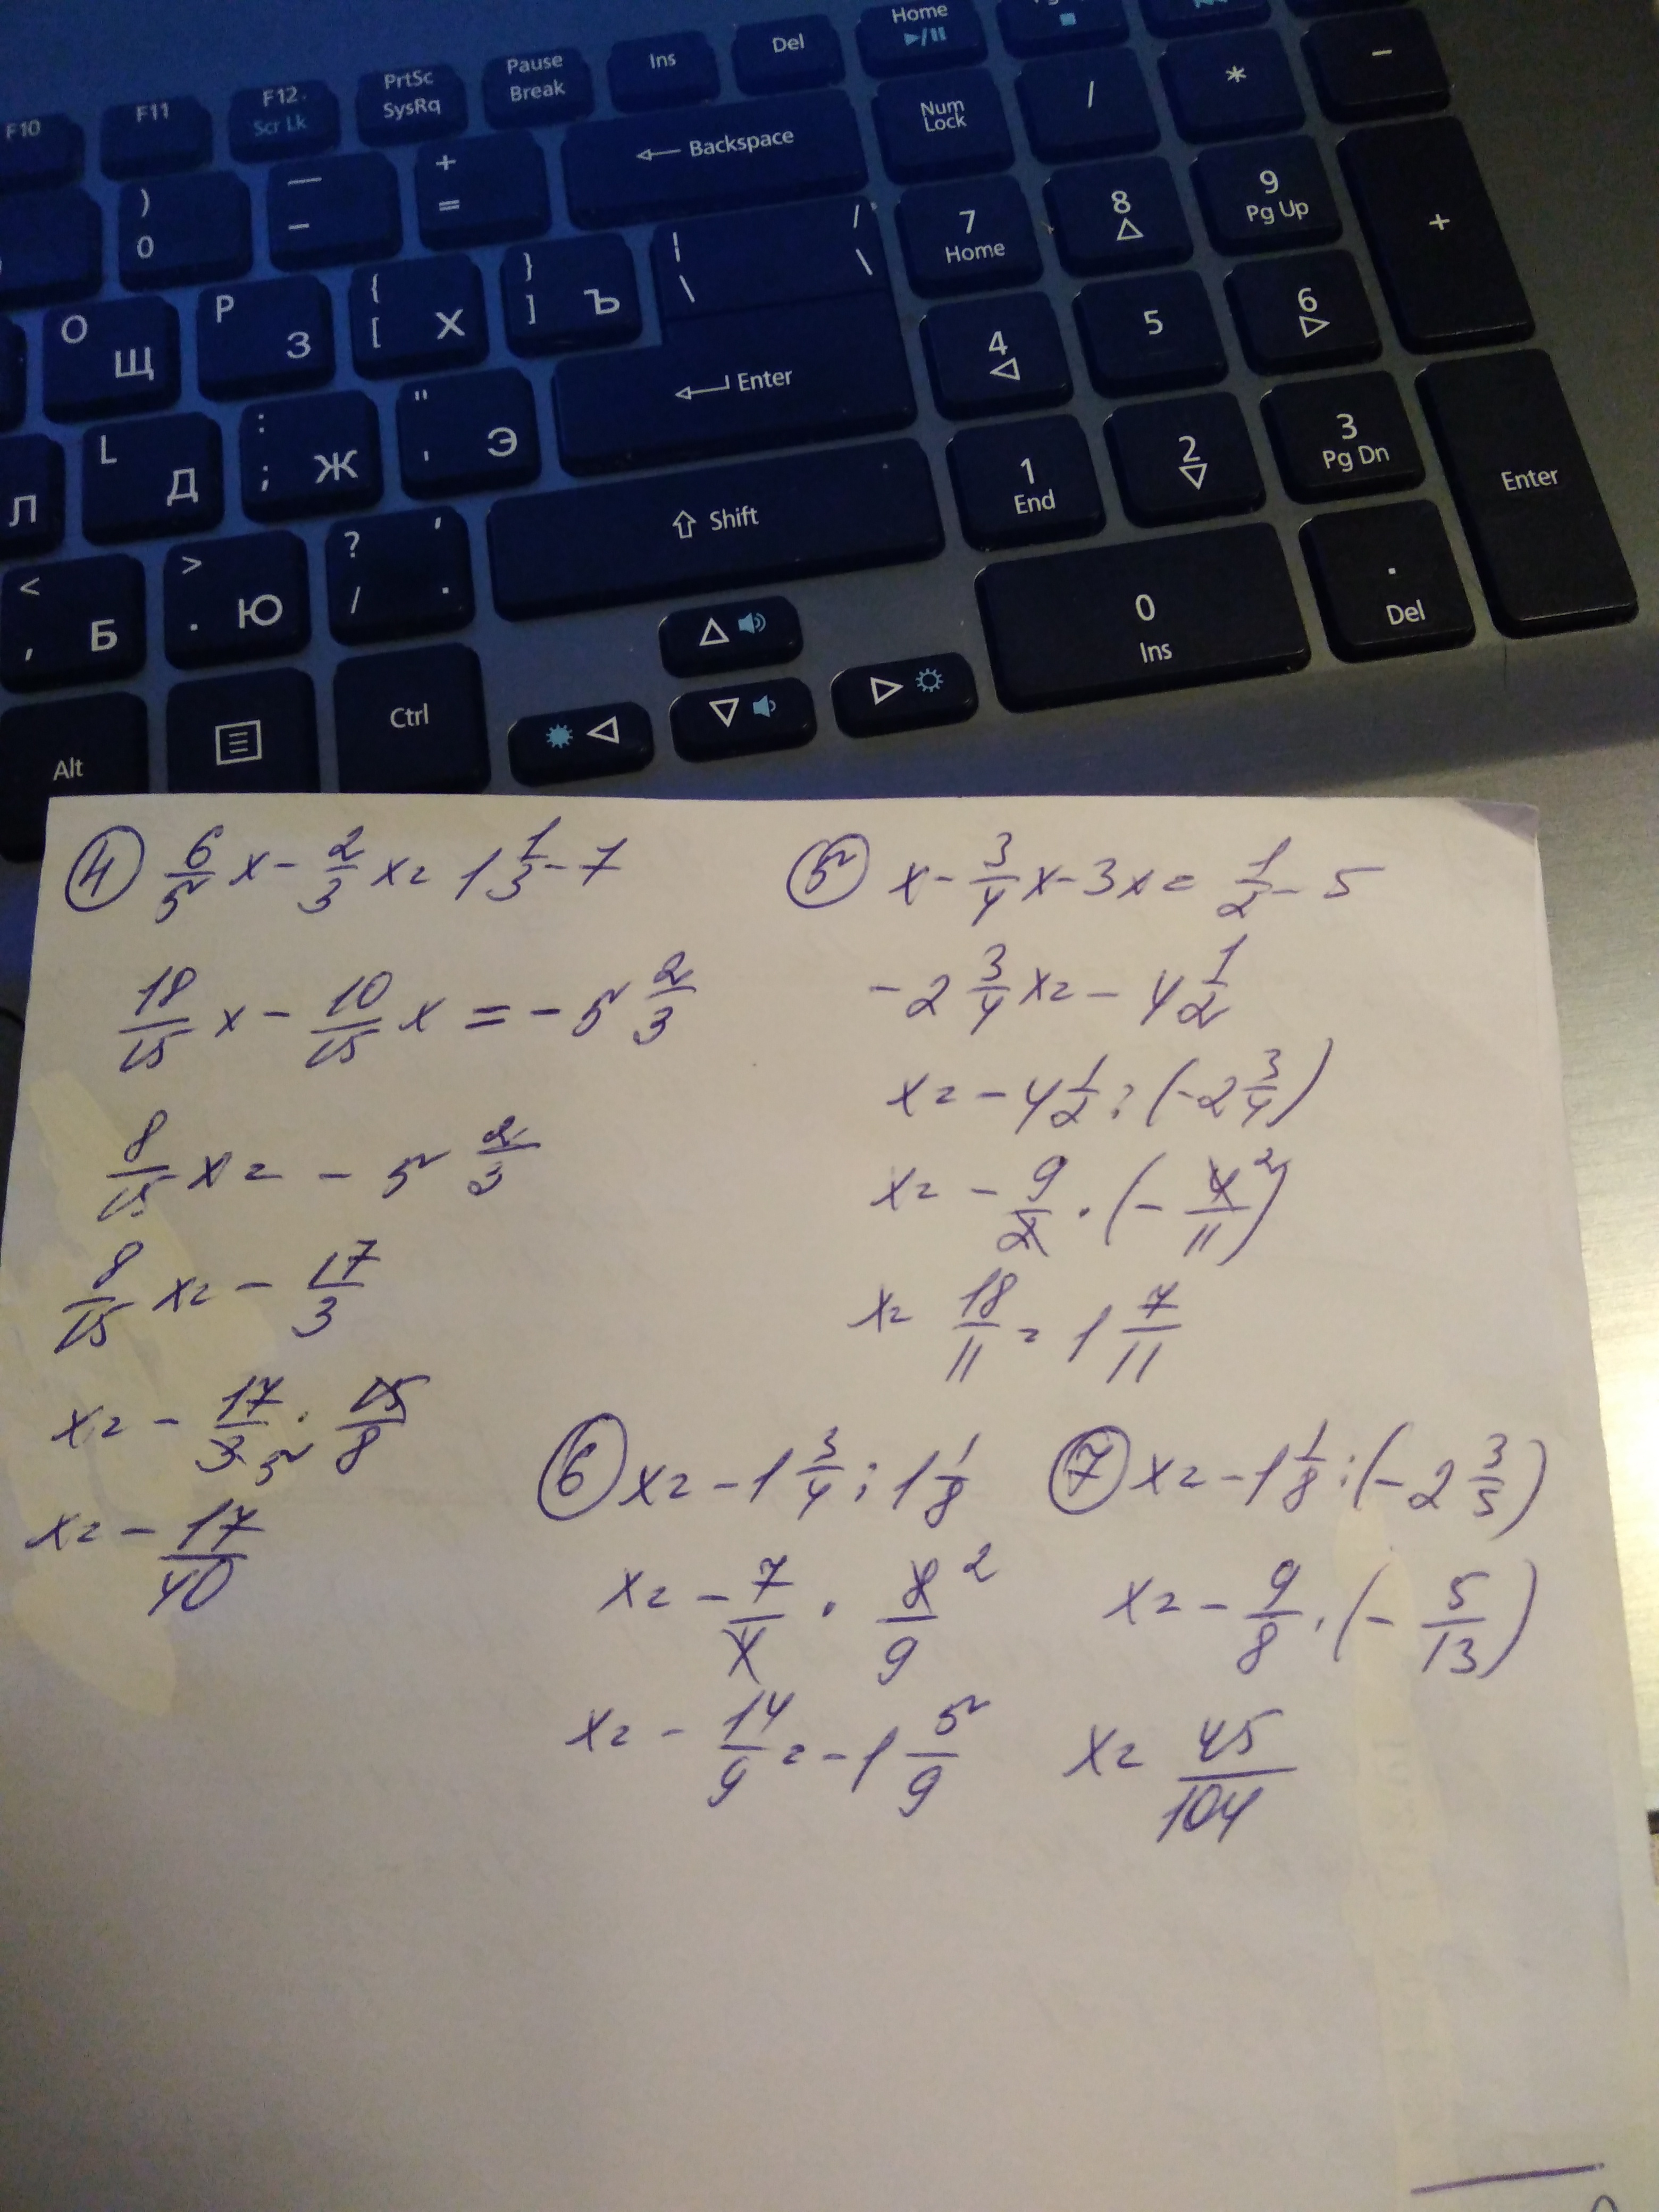 Home
F10 F11 F12 Scr Lk PrtSc SysRq Pause Break Ins Del ►/II
Num Lock / * −
) 0 — − + = ← Backspace
7 Home 8 9 Pg Up +
O Щ P З { [ Х } ] Ъ | \ / \
4 5 6
Л L Д : ; Ж " ' Э Enter
1 End 2 3 Pg Dn Enter
< , Б > . Ю ? / , . Shift
0 Ins . Del
Alt Ctrl
④ 6/5 x - 2/3 x = 1 1/3 - 7
18/15 x - 10/15 x = - 5 2/3
8/15 x = - 5 2/3
8/15 x = - 17/3
x = - 17/3 5 · 15/8
x = - 17/40
⑤ x - 3/4 x - 3x = 1/2 - 5
- 2 3/4 x = - 4 1/2
x = - 4 1/2 : (- 2 3/4)
x = - 9/2 · (- 4/11 2)
x = 18/11 = 1 7/11
⑥ x = - 1 3/4 : 1 1/8
x = - 7/4 · 8/9 2
x = - 14/9 = - 1 5/9
⑦ x = - 1 1/8 : (- 2 3/5)
x = - 9/8 · (- 5/13)
x = 45/104